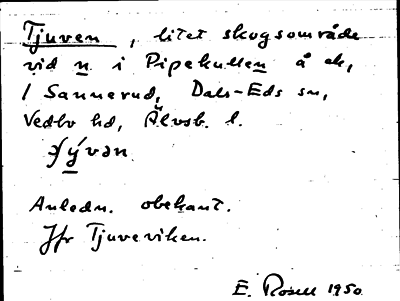 Tjuven, litet skogsområde
vid n i Pipekullen å ek,
1 Sannerud, Dals-Eds sn,
Vedbo hd, Älvsb. l.
Anledn. obekant.
Jfr Tjuveviken.
E. Rosell 1950